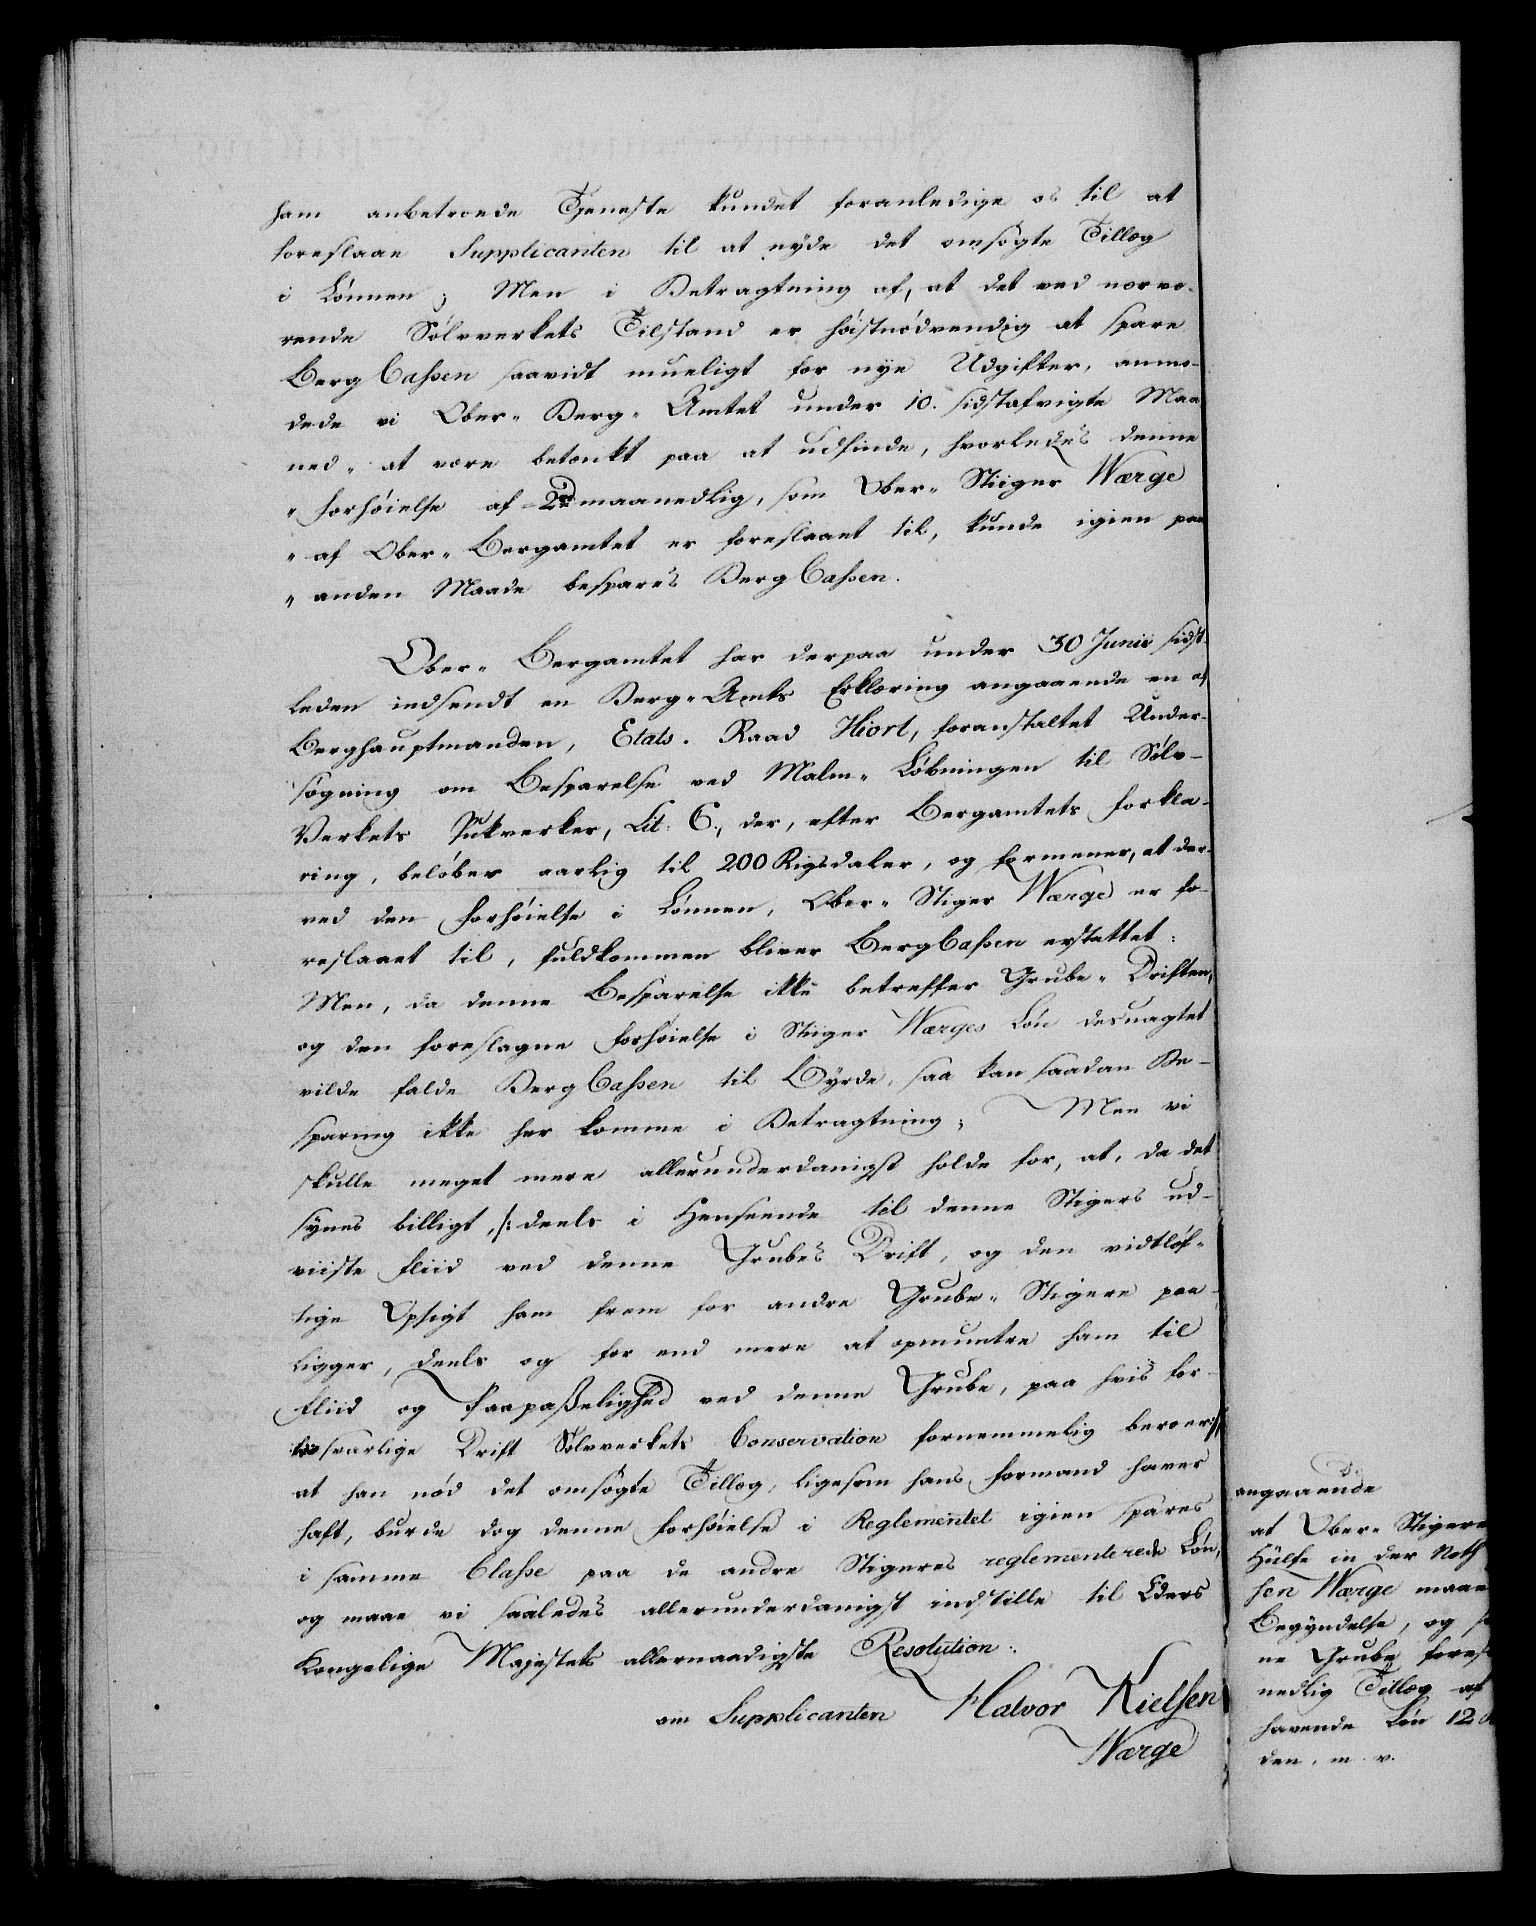 ham anbetroede Tjeneste kundet foranledige os til at
foreslaae Supplicanten til at nyde det omsøgte Tillæg
i Lønnen; Men i Betragtning af, at det ved nærvæ-
rende Sølvverkets Tilstand er høistnødvendig at spare
Berg Cassen saavidt mueligt for nye Udgifter, anmo-
dede vi Ober- Berg- Amtet under 10. sidstafvigte Maa
ned, at være betænkt paa at udfinde, hvorledes denne
" Forhøielse af 2 rd maanedlig, som Ober- Stiiger Wærge
" af Ober- Bergamtet er foreslaaet til, kunde igien paa
" anden Maade bespares Berg Cassen.
Ober- Bergamtet har derpaa under 30 Junii sidst-
leden indsendt en Berg-Amts Erklæring angaaende en af
Berghauptmanden, Etats- Raad Hiort, foranstaltet Under-
søgning om Besparelse ved Malm- Løbningen til Sølv-
Verkets Pukverker, Lit: C., der, efter Bergamtets Forkla-
ring, beløber aarlig til 200 Rigsdaler, og formener, at der-
ved den Forhøielse i Lønnen, Ober- Stiger Wærge er fo-
reslaaet til, fuldkommen bliver Berg Cassen erstattet:
Men, da denne Besparelse ikke betreffer Grube- Driften,
og den foreslagne Forhøielse i Stiger Wærges Løn desuagtet
vilde falde Berg Cassen til Byrde, saa kan saadan Be-
sparing ikke her komme i Betragtning; Men vi
skulle meget mere allerunderdanigst holde for, at, da det
synes billigt, /: deels i Henseende til denne Stigers ud-
viiste Fliid ved denne Grubes Drift, og den vidtløf-
tige Opsigt ham frem for andre Grube- Stigere paa-
ligger, deels og for end mere at opmuntre ham til
Fliid og Paapaßelighed ved denne Grube, paa hvis for-
svarlige Drift Sølvverkets Conservation fornemmelig beroer :/
at han nød det omsøgte Tillæg, ligesom hans Formand haver
haft, burde dog denne Forhøielse i Reglementet igien spares
i samme Classe paa de andre Stigeres reglementerede Løn,
og maae vi saaledes allerunderdanigst indstille til Eders
Kongelige Majestets allernaadigste Resolution:
om Supplicanten Halvor Kielsen
Wærge
angaaende
at Ober- Stigere
Hülfe in der Noth
sen Wærge maae
Begyndelse, og
ne Grube
nedlig Tillæg af
havende Løn 12
den, m. v.